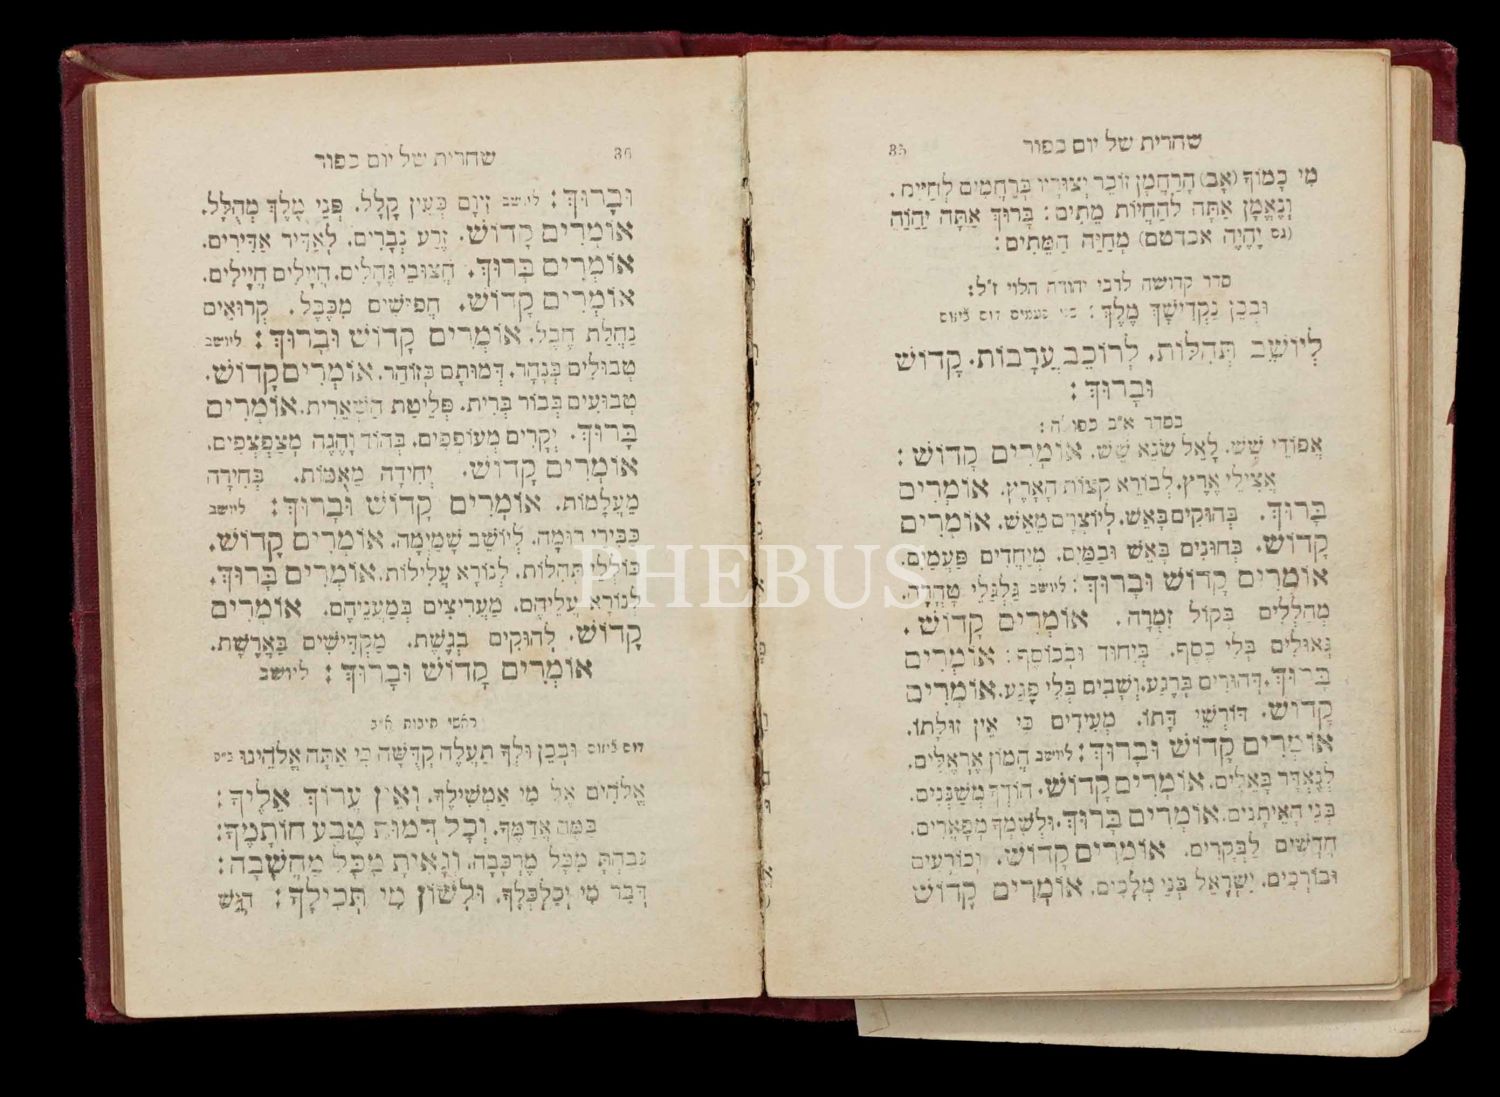 שחרית של יום כפור 35
מִי כָמוֹךָ (אָב) הָרַחֲמָן זוֹכֵר יְצוּרָיו בְּרַחֲמִים לְחַיִּים.
וְנֶאֱמָן אַתָּה לְהַחֲיוֹת מֵתִים: בָּרוּךְ אַתָּה יְהֹוָה
יִהְיֶה אכדטם) מְחַיֵּה הַמֵּתִים:
סדר קדושה לרבי יהודה הלוי ז״ל:
וּבְכֵן נַקְדִּישָׁךְ מֶלֶךְ:
לְיוֹשֵׁב תְּהִלּוֹת. לְרוֹכֵב עֲרָבוֹת. קָדוֹשׁ
וּבָרוּךְ:
בסדר א״ב כפולה:
אֲפוּדֵי שֵׁשׁ. לָאֵל שֹׂנֵא שֵׁשׁ. אוֹמְרִים קָדוֹשׁ:
אֲצִילֵי אֶרֶץ. לְבוֹרֵא קְצוֹת הָאָרֶץ. אוֹמְרִים
בָּרוּךְ. בְּהוּקִים בָּאֵשׁ. לְיוֹצְרָם מֵאֵשׁ. אוֹמְרִים
קָדוֹשׁ. בְּחוּנִים בָּאֵשׁ וּבַמַּיִם. מְיַחֲדִים פַּעֲמַיִם.
אוֹמְרִים קָדוֹשׁ וּבָרוּךְ: ליושב גַּלְגַּלֵּי טָהֳרָה.
מְהַלְלִים בְּקוֹל זִמְרָה. אוֹמְרִים קָדוֹשׁ.
גְּאוּלִים בְּלִי כֶסֶף. בְּיִחוּד וּבְכוֹסֶף: אוֹמְרִים
בָּרוּךְ. דְּהוּרִים בְּרֶגַע. וְשָׁבִים בְּלִי פֶגַע. אוֹמְרִים
קָדוֹשׁ. דּוֹרְשֵׁי דָתוֹ. מְעִידִים כִּי אֵין זוּלָתוֹ.
אוֹמְרִים קָדוֹשׁ וּבָרוּךְ: ליושב הֲמוֹן אֶרְאֶלִּים.
לְנֶאְדָּר בָּאֵלִים. אוֹמְרִים קָדוֹשׁ. הוֹדְךָ מְשַׁנְּנִים.
בְּנֵי הָאֵיתָנִים. אוֹמְרִים בָּרוּךְ. וּלְשִׁמְךָ מְפָאֲרִים.
חֲדָשִׁים לַבְּקָרִים. אוֹמְרִים קָדוֹשׁ. וְכוֹרְעִים
וּבוֹרְכִים. יִשְׂרָאֵל בְּנֵי מְלָכִים. אוֹמְרִים קָדוֹשׁ
36 שחרית של יום כפור
וּבָרוּךְ: ליושב זִיוָם כְּעֵין קָלָל. פְּנֵי מֶלֶךְ מְהֻלָּל.
אוֹמְרִים קָדוֹשׁ. זֶרַע גְּבָרִים. לְאַדִּיר אַדִּירִים.
אוֹמְרִים בָּרוּךְ. חֲצוּבֵי גֶּחָלִים. חֲיָילִים חֲיָילִים.
אוֹמְרִים קָדוֹשׁ. חֻפְשִׁים מִכֶּבֶל. קְרוּאִים
נַחֲלַת חֶבֶל. אוֹמְרִים קָדוֹשׁ וּבָרוּךְ: ליושב
טְבוּלִים בְּנָהָר. דְּמוּתָם כְּזוֹהַר. אוֹמְרִים קָדוֹשׁ.
טְבוּעִים בְּבוֹר בְּרִית. פְּלֵיטַת הַשְּׁאֵרִית. אוֹמְרִים
בָּרוּךְ. יְקָרִים מְעוֹפְפִים. בְּהוֹד וָהֶגֶה מְצַפְצְפִים.
אוֹמְרִים קָדוֹשׁ. יְחִידָה מֵאֻמּוֹת. בְּחִירָה
מֵעֲלָמוֹת. אוֹמְרִים קָדוֹשׁ וּבָרוּךְ: ליושב
כַּבִּירֵי רוּמָה. לְיוֹשֵׁב שָׁמַיְמָה. אוֹמְרִים קָדוֹשׁ.
כּוֹלְלֵי תְּהִלּוֹת. לְנוֹרָא עֲלִילוֹת. אוֹמְרִים בָּרוּךְ.
לְנוֹרָא עֲלֵיהֶם. מַעֲרִיצִים בְּמַעֲנֵיהֶם. אוֹמְרִים
קָדוֹשׁ. לְהוּקִים בְּגֶשֶׁת. מַקְדִּישִׁים בַּאֲרֶשֶׁת.
אוֹמְרִים קָדוֹשׁ וּבָרוּךְ: ליושב
ראשי תיבות א״ב
וּבְכֵן וּלְךָ תַעֲלֶה קְדֻשָּׁה כִּי אַתָּה אֱלֹהֵינוּ
אֱלֹהִים אֵל מִי אַמְשִׁילֶךָ. וְאֵין עֲרוֹךְ אֵלֶיךָ:
בַּמֶּה אֲדַמֶּךָּ. וְכָל דְּמוּת טֶבַע חוֹתָמֶךָ:
גָּבַהְתָּ מִכָּל מֶרְכָּבָה. וְגָאִיתָ מִכָּל מַחֲשָׁבָה:
דְּבַר מִי יְכַלְכְּלֶךָ. וּלְשׁוֹן מִי תְּכִילֶךָ: הֲגַשׁ
PHEBUS